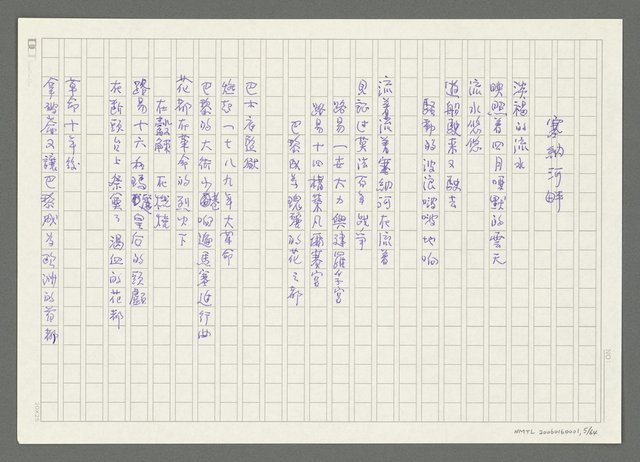 塞納河畔
淡褐的流水
映照着四月嘆默的雲天
流水悠悠
遊船駛來又駛去
騷動的波浪啪啪地响
流着流着塞納河在流着
見証过英法百年战爭
路易一世大力興建羅浮宮
路易十四構築凡爾賽宮
巴黎成為瑰麗的花之都
巴士底監獄
燃起一七八九年大革命
巴黎的大街小巷响遍馬賽進行曲
花都在革命的烈火下
在顫慄 在燃燒
路易十六和瑪麗皇后的頭顱
在断頭台上祭奠了渴血的花都
革命十年後
拿破崙又讓巴黎成為歐洲的首都
NO.
20X25
NMTL 20060160001, 5/64